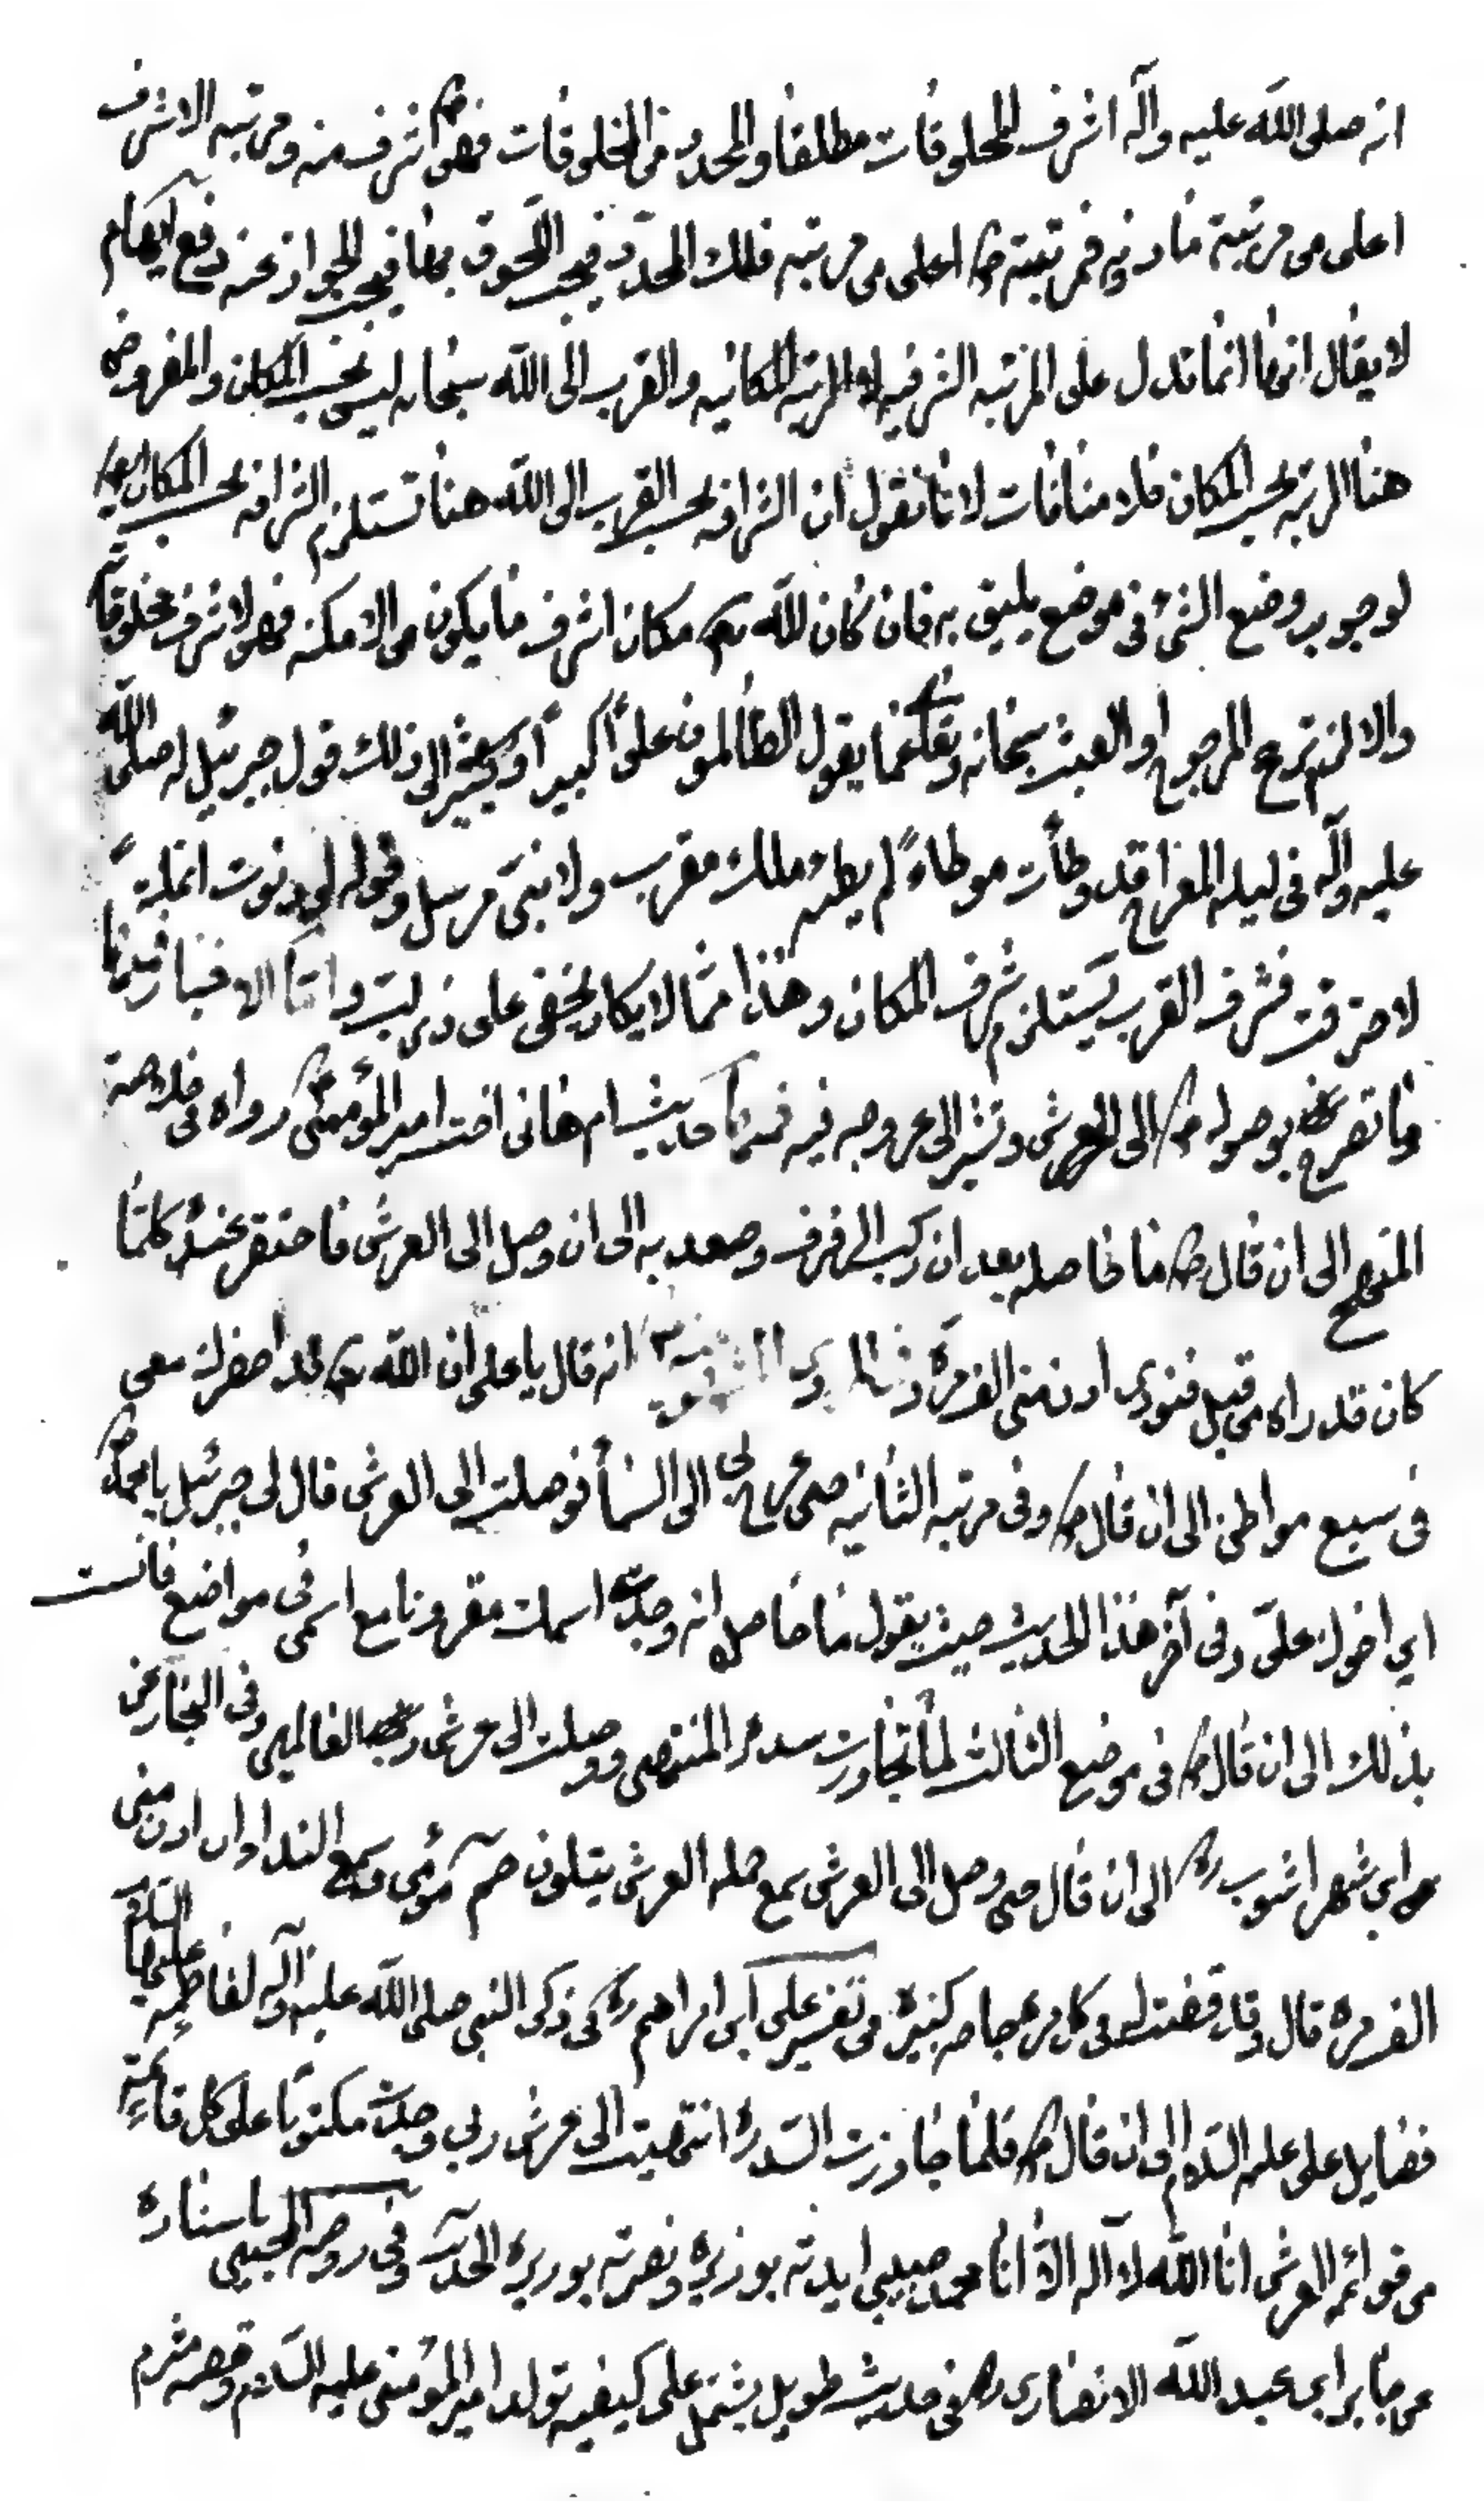 انه صلى الله عليه وآله اشرف المخلوقات مطلقا والمحدد من المخلوقات فهو اشرف منه ومرتبه الاشرف
اعلى من مرتبة مادونه فمرتبته ص اعلى من مرتبه فلك المحدد فيجب اللحوق بها فيجب الجواز عنه دفع ايهام
لا يقال انها انما تدل على المرتبه الشرفيه لا المرتبه المكانيه والقرب الى الله سبحانه ليس بحسب المكان والمفروض
هنا المرتبه بحسب المكان فلا منافات لانا نقول ان الشرافه بحسب القرب الى الله هنا تستلزم الشرافه بحسب المكان
لوجوب وضع الشئ فى موضع يليق به فان كان لله تع مكان اشرف ما يكون من الامكنه فهو لاشرف مخلوقاته
والا لزم ترجح المرجوح او العبث سبحانه وتعالى عما يقول الظالمون علوا كبيرا ويشير الى ذلك قول جبرئيل له صلى الله
عليه وآله فى ليله المعراج قد وطأت موطاءً لم يطئه ملك مقرب ولا نبى مرسل وقوله لو دنوت انملة
لاحترقت فشرف القرب يستلزم شرف المكان وهذا مما لا يكاد يخفى على ذى لب واما الاخبار فمنها
ما تصرح بوصوله ص الى العرش وتشير الى عروجه فيه فمنها حديث ام هانى اخت امير المؤمنين ع رواه فى خلاصة
المنهج الى ان قال ص ما حاصله بعد ان ركب الرفرف وصعد به الى ان وصل الى العرش فاحتقر عنده كلما
كان قد راه من قبل فنودى ادن منى الف مرة انه قال يا على ان الله تع قد احضرك معى
فى سبع مواطن الى ان قال ص وفى مرتبه الثانيه حين عرج بى الى السماء فوصلت الى العرش قال لى جبرئيل يا محمد ص
اين اخوك على وفى آخر هذا الحديث حيث يقول ما حاصله انه وجدت اسمك مقرونا مع اسمى فى مواضع فانست
بذلك الى ان قال ص فى موضع الثالث لما تجاوزت سدرة المنتهى ووصلت الى عرش رب العالمين وفى البحار عن
ابن شهراشوب ره الى ان قال حتى وصل الى العرش سمع حمله العرش يتلون حم مؤمن وسمع الندا وان ادن منى
الف مره قال وقد قضيت لى فى كل مره حاجه كبيرة من تفسير على ابن ابراهيم ره فى ذكر النبى صلى الله عليه وآله لفاطمه عليها السلام
فضايل على عليه السلام الى ان قال ص فلما جاوزت السدرة انتهيت الى عرش ربى وجدت مكتوبا على كل قائمة
من قوائم العرش انا الله لا اله الا انا محمد حبيبى ايدته بوزيره ونصرته بوزيره الحديث وفى روضه باسناده
عن جابر ابن عبد الله الانصارى ره فى حديث طويل يشتمل على كيفيه تولد امير المؤمنين عليه السلام وقصه مثرم